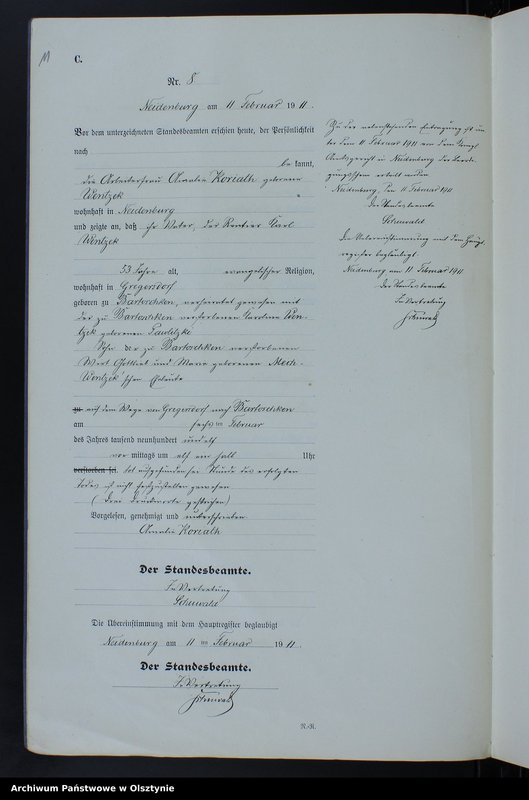 11
C.
Nr. 8
Neidenburg am 11 Februar 1911.
Vor dem unterzeichneten Standesbeamten erschien heute, der Persönlichkeit
nach
be kannt,
die Arbeiterfrau Amalie Koriath geborene
Wontzek
wohnhaft in Neidenburg
und zeigte an, daß ihr Vater, der Rentier Karl
Wontzek
53 Jahre alt, evangelischer Religion,
wohnhaft in Gregersdorf
geboren zu Bartoschken, verheiratet gewesen mit
der zu Bartoschken verstorbenen Karoline Won-
tzek geborenen
Sohn der zu Bartoschken verstorbenen
Wirt Gottlieb und Marie geborenen
Wontzek'schen Eheleute
zu auf dem Wege von Gregersdorf nach Bartoschken
am sechsten Februar
des Jahres tausend neunhundert und elf
vor mittags um elf ein halb Uhr
verstorben sei. tot aufgefunden sei Stunde des erfolgten
Todes ist nicht festzustellen gewesen
(Drei Druckworte gestrichen)
Vorgelesen, genehmigt und unterschrieben
Amalie Koriath
Der Standesbeamte.
In Vertretung
Die Übereinstimmung mit dem Hauptregister beglaubigt
Neidenburg am 11 ten Februar 1911.
Der Standesbeamte.
In Vertretung
N.-R.
Zu der nebenstehenden Eintragung ist un-
ter dem 11 Februar 1911 von dem Königl
Amtsgericht in Neidenburg der Beerdi-
gungsschein erteilt worden
Neidenburg, den 11 Februar 1911
Der Standesbeamte
Die Uebereinstimmung mit dem Haupt-
register beglaubigt
Neidenburg am 11 Februar 1911
Der Standesbeamte
In Vertretung
Archiwum Państwowe w Olsztynie